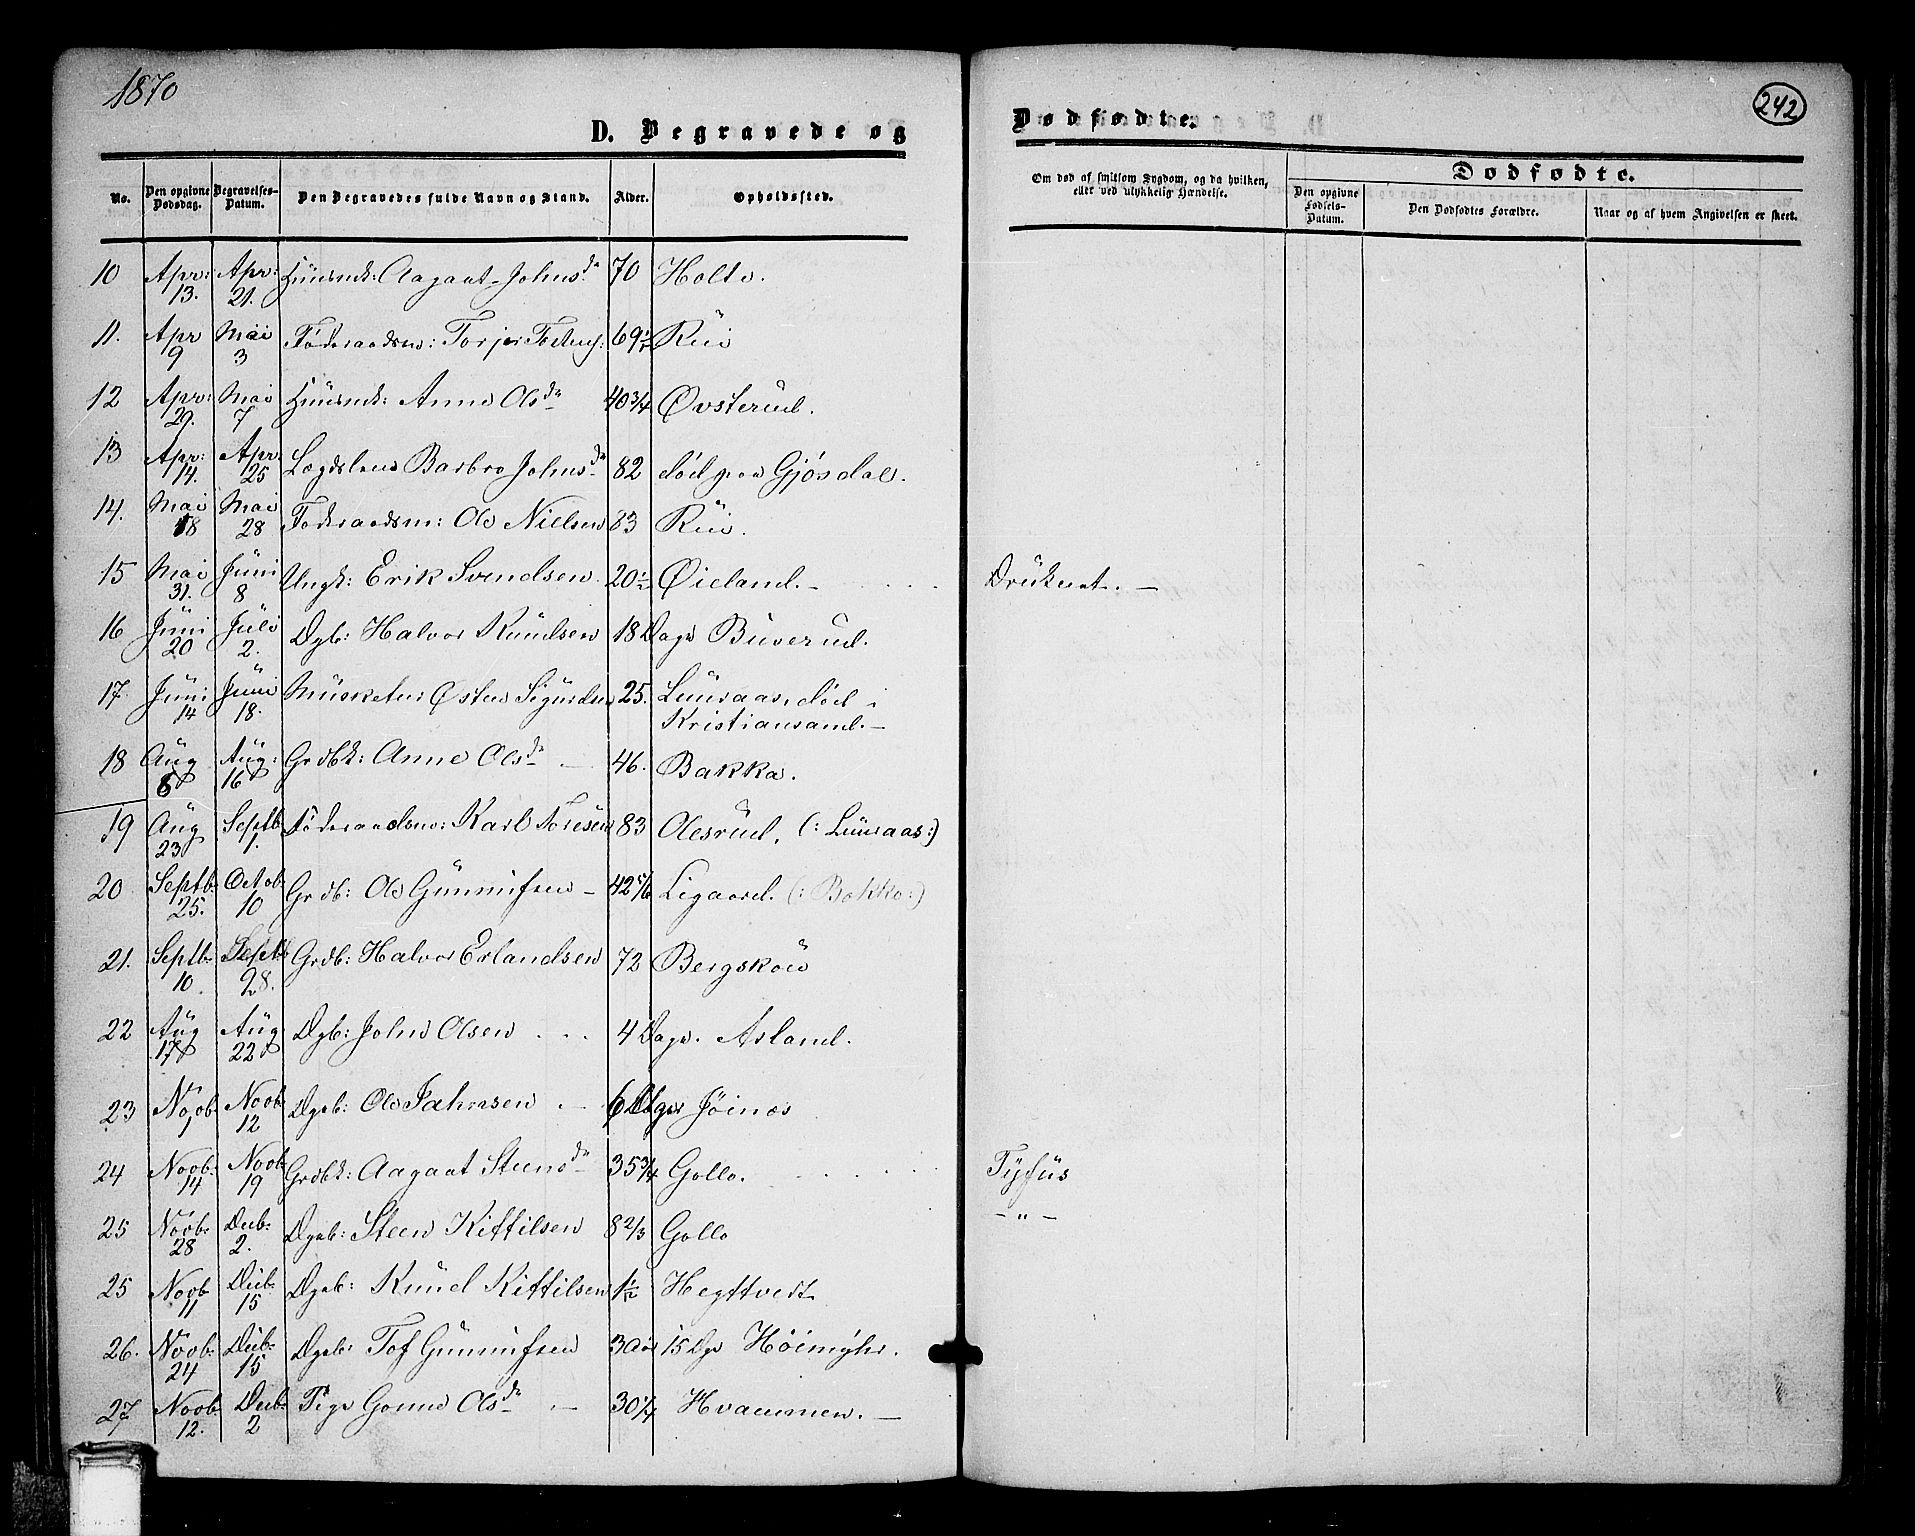 1870
242
D. Begravede og
Dødfødte.
No. Den opgivne Dødsdag. Begravelses-Datum. Den Begravedes fulde Navn og Stand. Alder. Opholdssted.
Om død af smitsom Sygdom, og da hvilken, eller ved ulykkelig Hændelse.
Dødfødte.
Den opgivne Fødsels-Datum. Den Dødfødtes Forældre. Naar og af hvem Angivelsen er skeet.
10 Apr: 13. Apr: 21. Huusmk: Aagaat Johnsd: 70 Holte.
11. Apr 9 Mai 3 Føderaadsm: Torjer 69½ Rui
12 Apr: 29. Mai 7 Huusmk: Anne Olsdr 40 3/4 Øvsterud.
13 Apr: 14. Apr: 25 Lægdslem Barbro Johnsdr 82 død paa Gjøsdal.
14. Mai 18 Mai 28 Føderaadsm: Ole Nielsen 83 Rui.
15 Mai 31. Juni 8 Ungk: Erik Svendsen. 20½ Øieland. Druknet.
16 Juni 20 Juli 2. Dgb: Halvor Knudsen 18 Dage Buverud.
17. Juni 14 Juni 18. Musketer: Østen Sigurdsen 25. Luuraas, død i
Kristiansand.
18 Aug 8 Aug: 16 Grdbk: Anne Olsdr 46. Bakka.
19 Aug 23 Septb 1. Føderaadsm: Karl Toresen 83 Olesrud. (: Luuraas:)
20 Septb. 25. Octob. 10 Grdb: Ole Gunnufsen 42 5/6 Ligaard. (: Bakko:)
21. Septb. 10. Septb 28. Grdb: Halvor Erlandsen 72 Bergskoe
22 Aug 17 Aug 22 Dgb: John Olsen 4 Dage. Asland.
23 Novb. 1 Novb. 12 Dgeb: Ole 6 Dage Jøines
24 Novb. 14 Novb. 19 Grdbk: Aagaat Steensdr 35 3/4 Gollo. Tyfus
25 Novb. 28 Decb. 2. Dgeb: Steen Kittilsen 8 2/3 Gollo - " -
25 Novb. 11 Decb. 15 Dgeb: Knud Kittilsen 1½ Hegttvedt
26. Novb. 24 Decb. 15 Dgeb: Tof Gunnufsen 3 Aar 15 Dge Høimyhr.
27 Novb. 12. Decb. 2 Pige Gonne Olsdr 30 1/4 Hvammen.